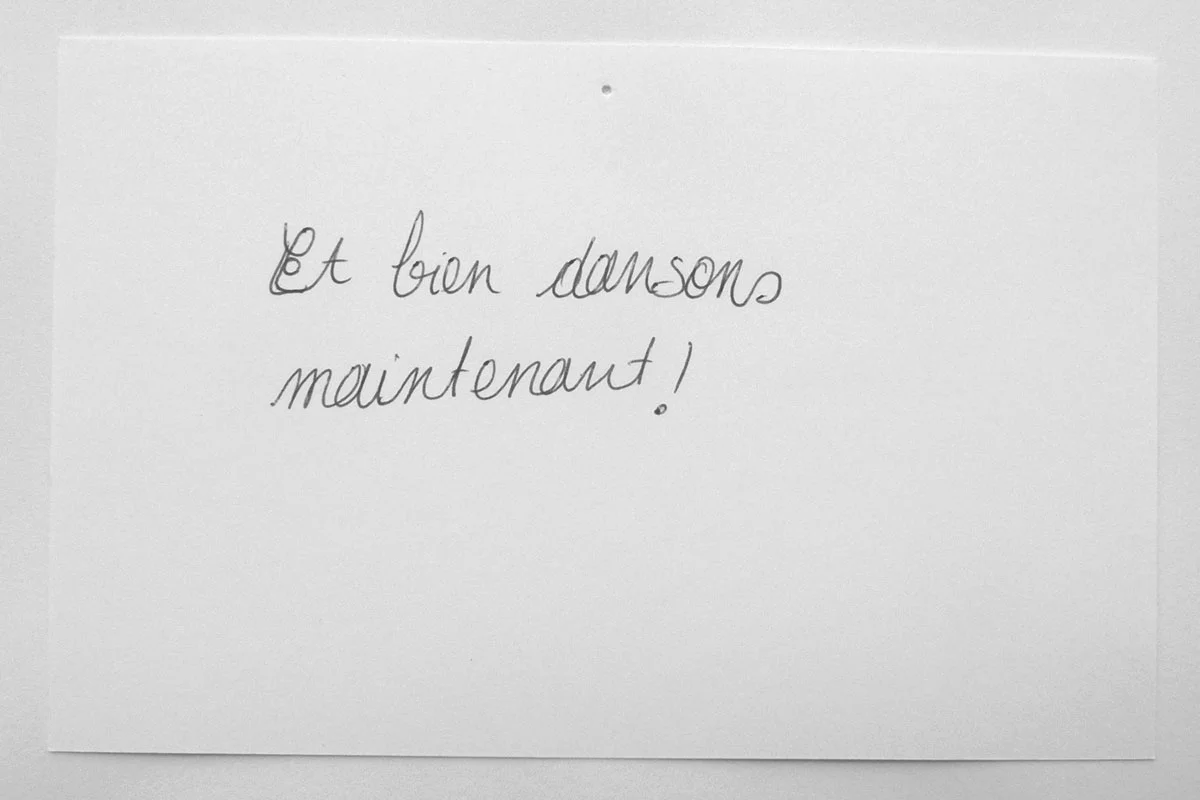 Et bien dansons
maintenant !